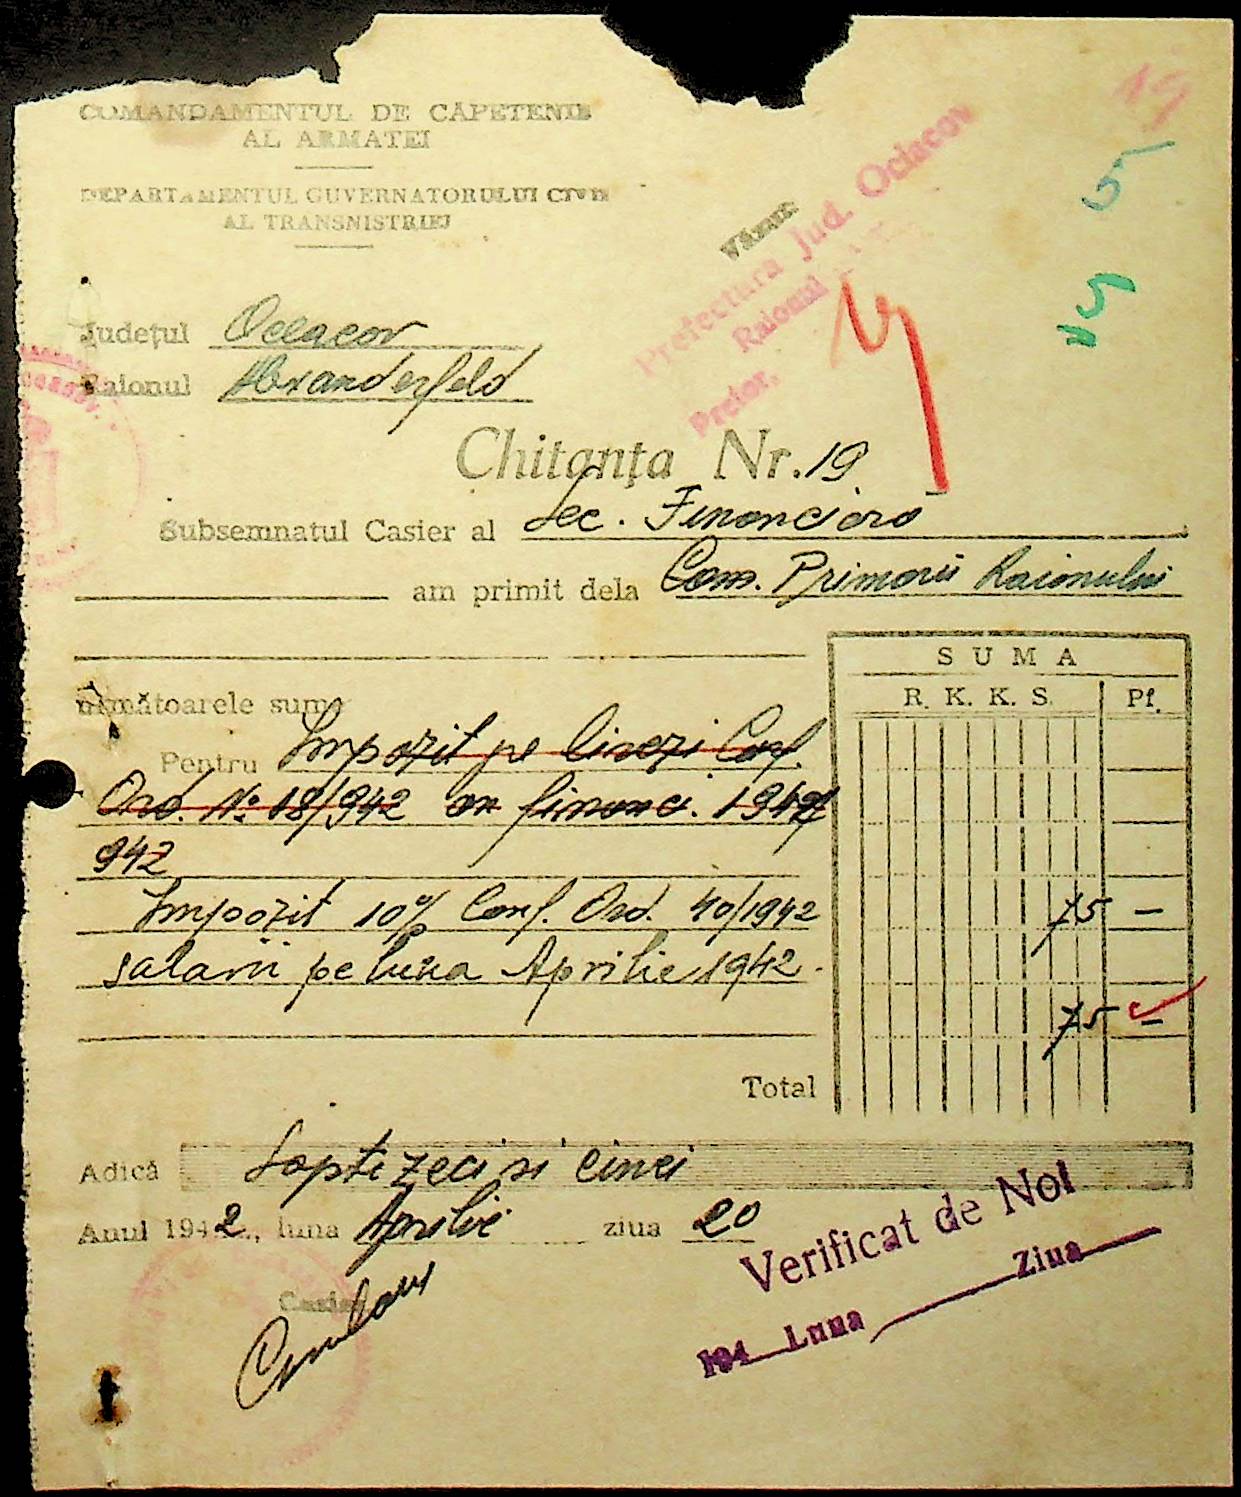 COMANDAMENTUL DE CĂPETENIE
AL ARMATEI
DEPARTAMENTUL GUVERNATORULUI CIVIL
AL TRANSNISTRIEI
19
5
Văzut
Prefectura Jud. Oclacov
Raionul
Pretor,
Județul Oceacov
Raionul Alexanderfeld
Chitanța Nr. 19
Subsemnatul Casier al Sec. Financiara
am primit dela Com. Primarii Raionului
următoarele sume
SUMA
R. K. K. S. Pf.
Pentru Impozit pe livezi Conf.
Ord. No 18/942 an financi. 1942
942
Impozit 10% Conf. Ord. 40/1942 75 —
salarii pe luna Aprilie 1942.
75 —
Total
Adică Șaptezeci si cinci
Anul 1942., luna Aprilie ziua 20
Casier
Verificat de Noi
194 Luna Ziua